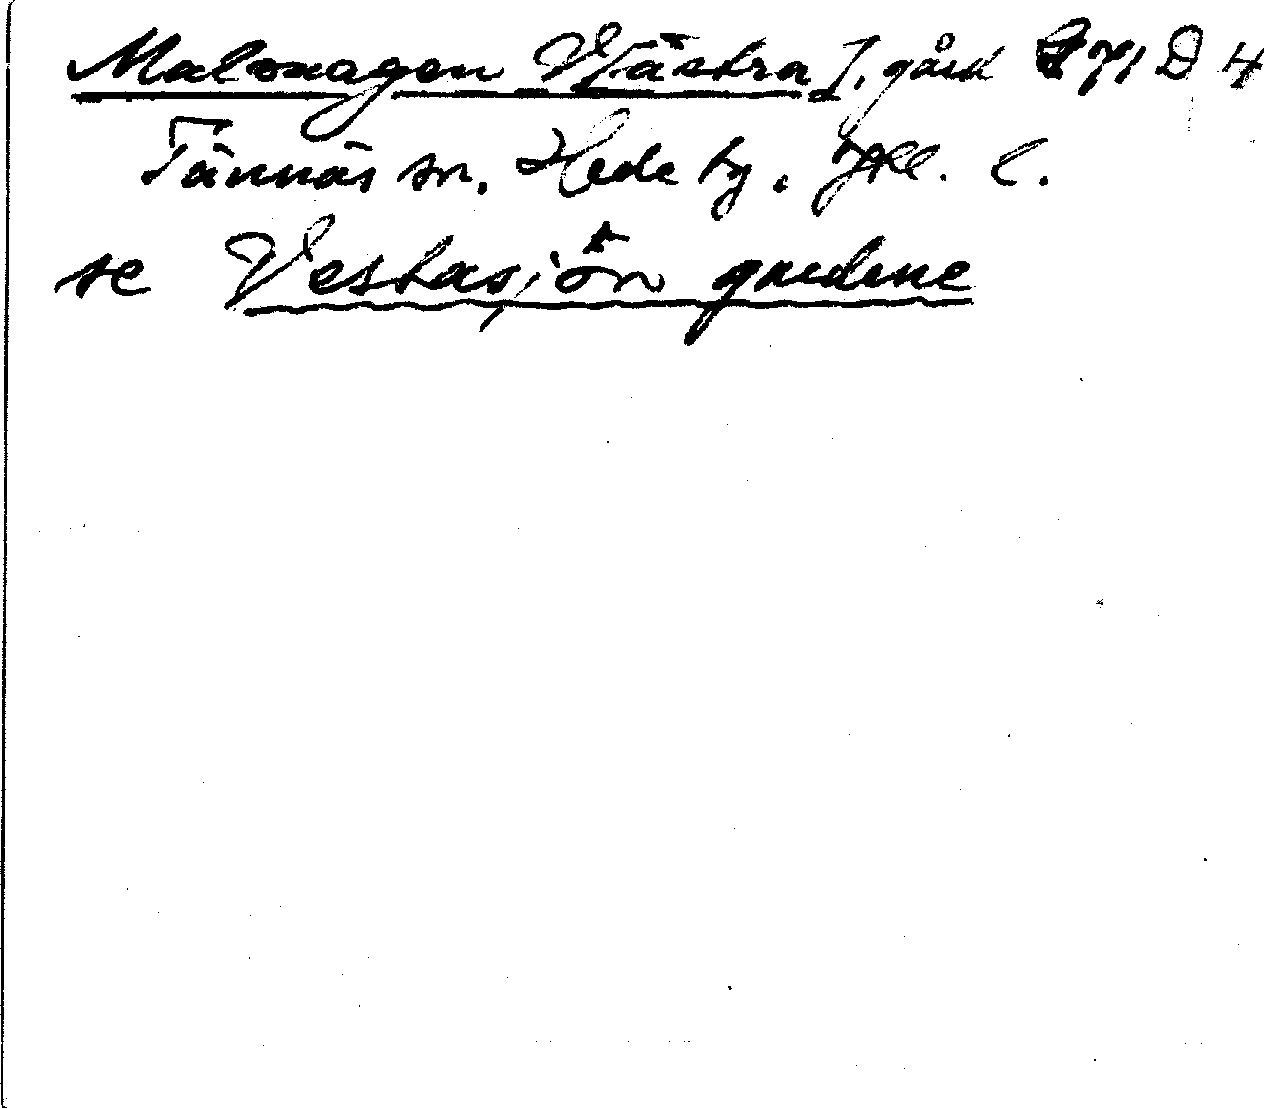 Malmagen Västra I, gård D 4
Tännäs sn. Hede tg. Jtl. l.
se Vestasjön gardene